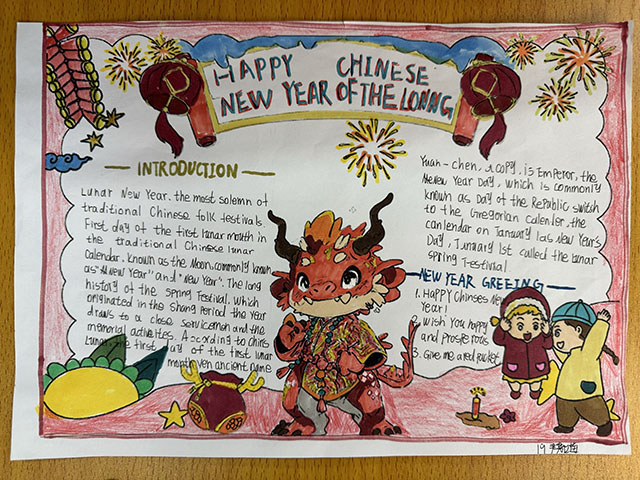 HAPPY CHINESE
NEW YEAR OF THE LONNG
INTRODUCTION
Lunar New Year, the most solemn of
traditional Chinese folk festivals.
First day of the first lunar mouth in
the traditional Chinese lunar
calendar, known as the Moon, commonly known
as "New Year" and "New Year". The long
history of the Spring Festival, which
originated in the Shang period the year
draws to a close Servicemen and the
memorial activities. According to
Lunar the first day of the first lunar
month even ancient name
Yuan-chen, a copy, is Emperor, the
New Year Day, which is commonly
known as Day of the Republic switch
to the Gregorian calender, the
canlendar on January 1as New Year's
Day, January 1st called the lunar
Spring Testival
NEW YEAR GREEING
1. HAPPY Chinses New
Year!
2. Wish You happy
and prospe rous
3. Give me a red packet
19